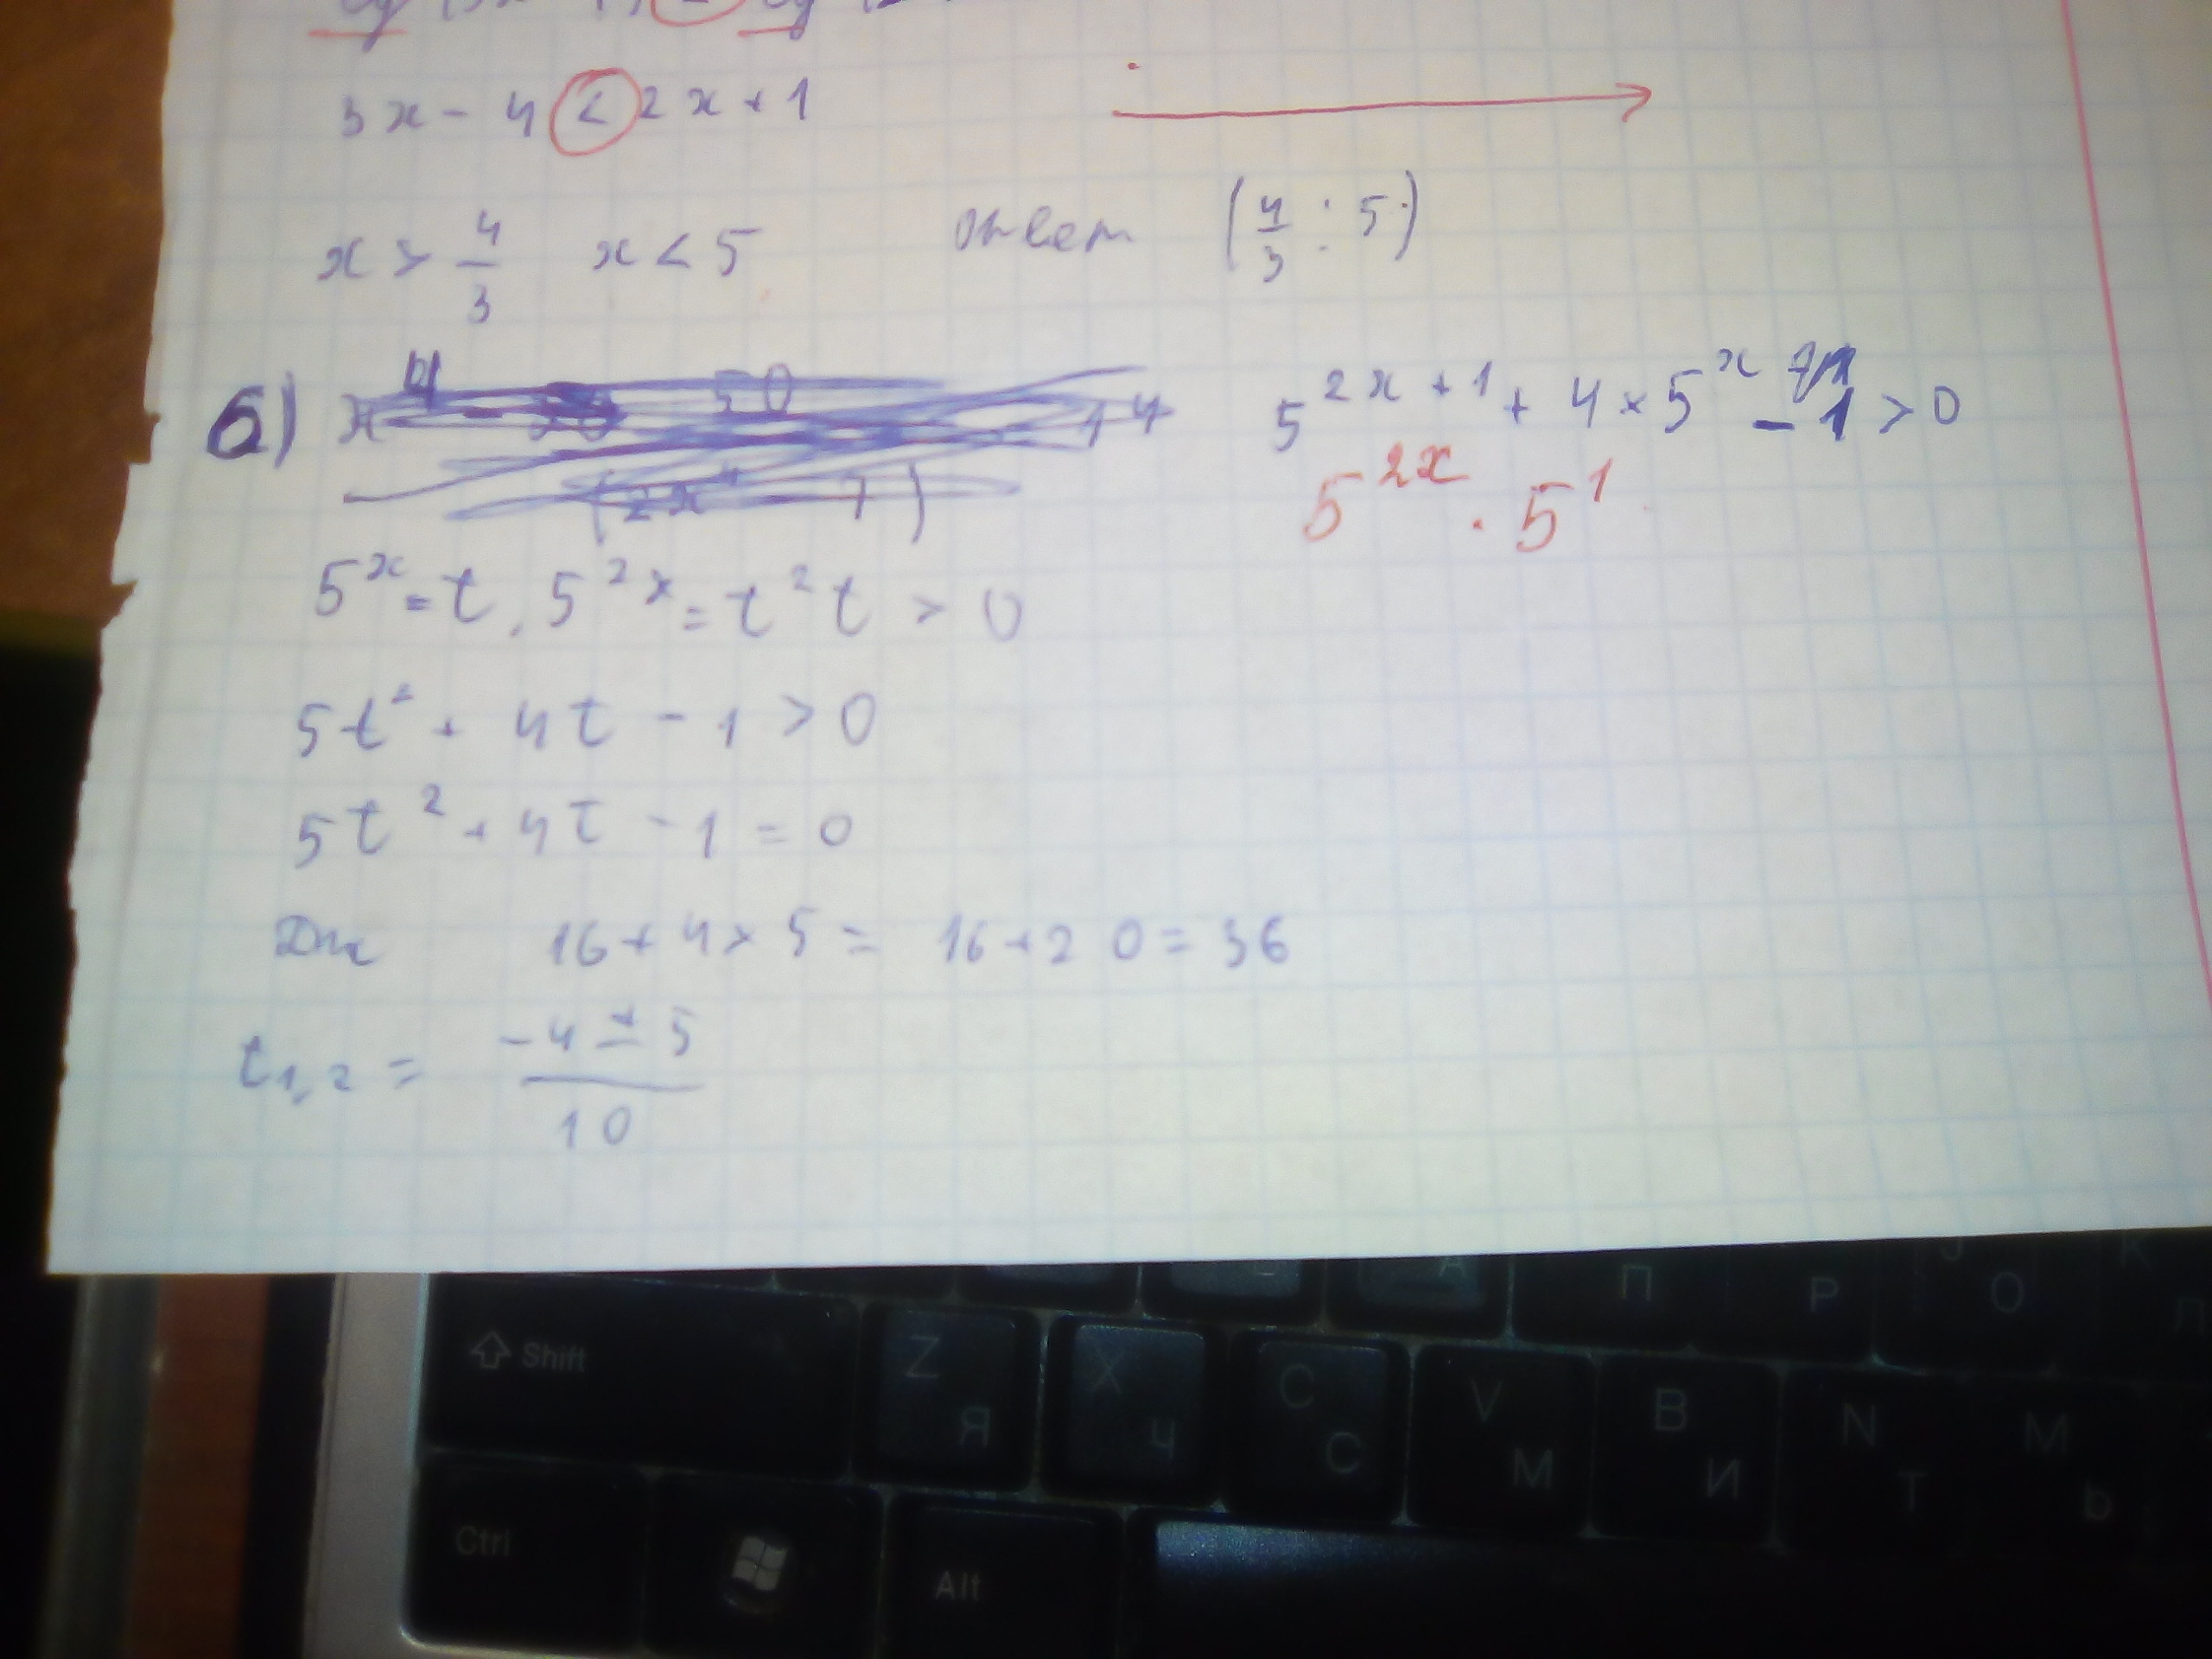 3x - 4 < 2x + 1
x > 4/3 x < 5 ответ (4/3 : 5)
б) 5^(2x+1) + 4 × 5^x - 1 > 0
5^(2x) · 5^1
5^x = t, 5^(2x) = t² t > 0
5t² + 4t - 1 > 0
5t² + 4t - 1 = 0
16 + 4 × 5 = 16 + 20 = 36
t1,2 = (-4 ± 5)/10
Shift Z Я X Ч C С V М B И N Т M Ь
А П Р О К Л
Ctrl Alt